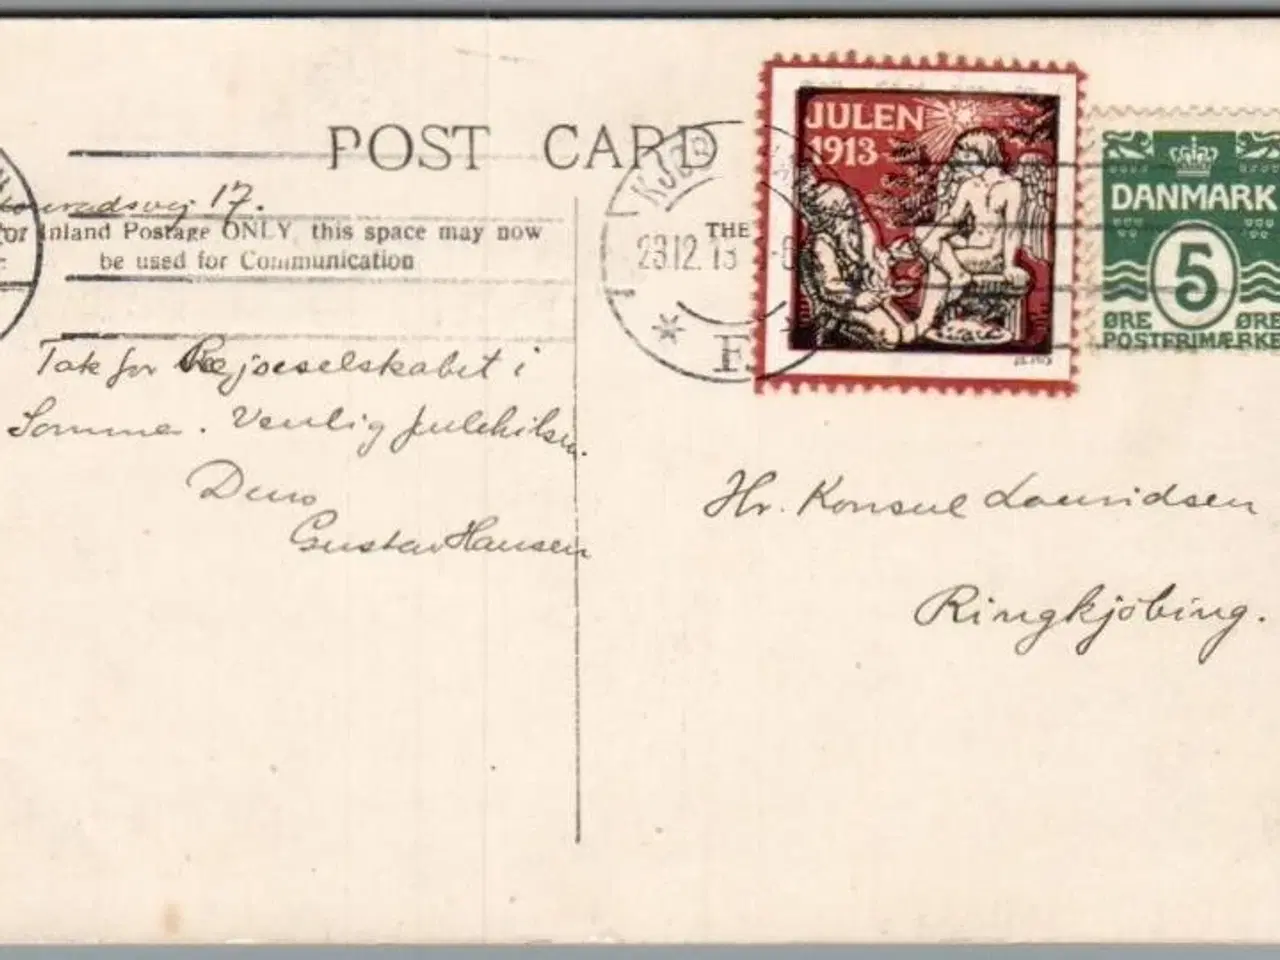 POST CARD
17.
For Inland Postage ONLY, this space may now
be used for Communication
THE
Tak for Rejseselskabet i
Sommer. Venlig Julehilsen.
Deres
Gustav Hansen
KJØB
23.12.13
F.
JULEN
1913
DANMARK
5
ØRE ØRE
POSTFRIMÆRKE
Hr. Konsul Lauridsen
Ringkjöbing.